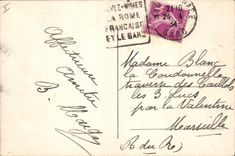 VEZ-NIMES
LA ROME
FRANÇAISE
ET LE GARD
Affectueuse
amitié
B.
Madame Blanc
la Coudounelle
traverse des Caillols
les 3 Lucs
par la Valentine
Marseille
(B du R)